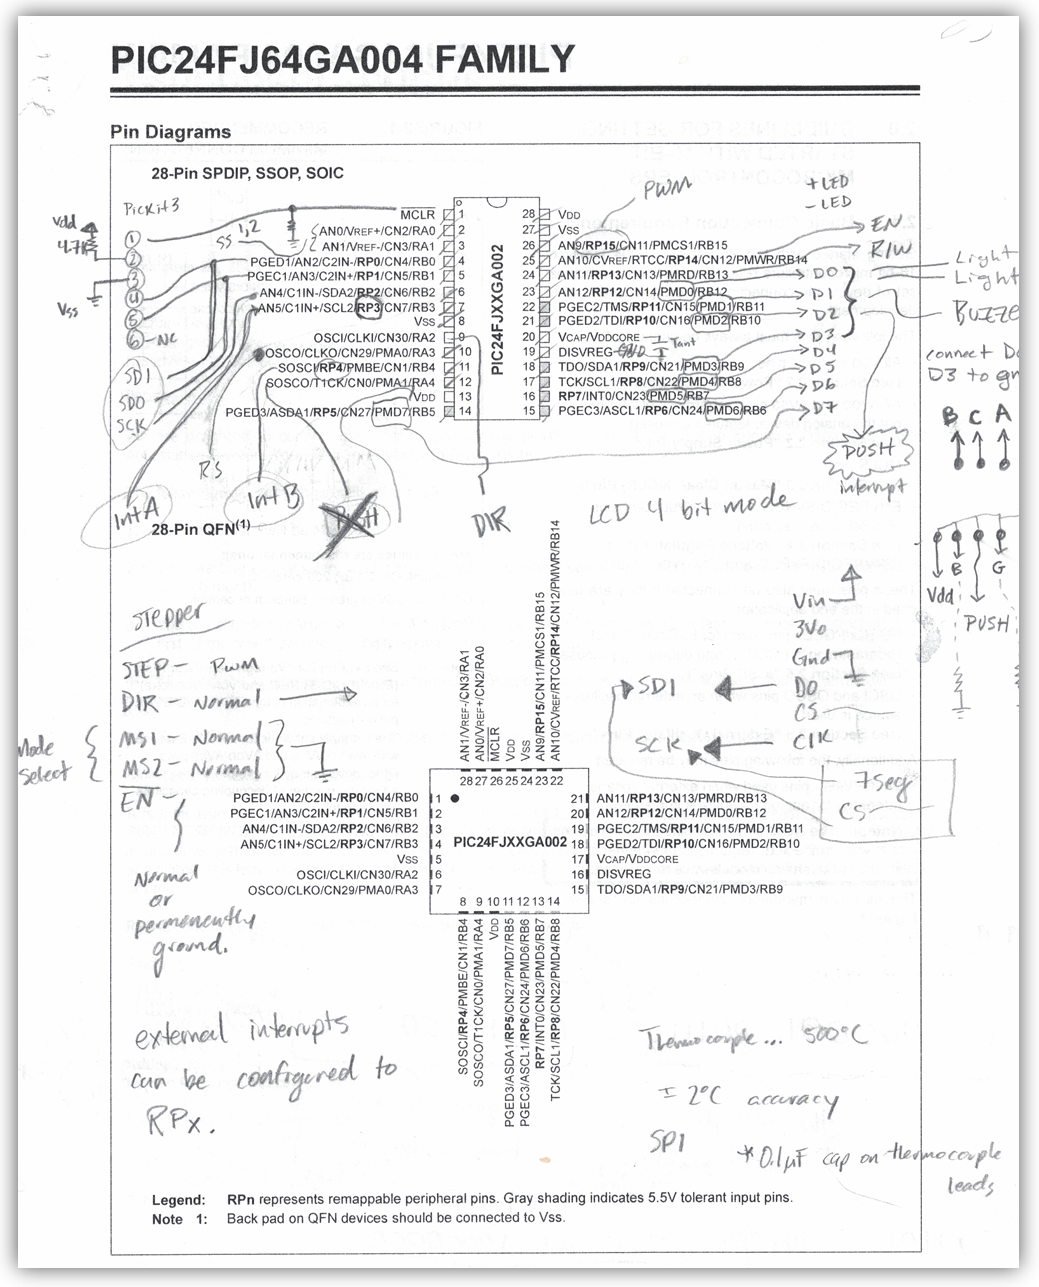 PIC24FJ64GA004 FAMILY
Pin Diagrams
28-Pin SPDIP, SSOP, SOIC
PicKit3
PWM
+ LED
- LED
Vdd
4.7K
Vss
1
2
3
4
5
6-NC
SS 1,2
MCLR
AN0/VREF+/CN2/RA0
AN1/VREF-/CN3/RA1
PGED1/AN2/C2IN-/RP0/CN4/RB0
PGEC1/AN3/C2IN+/RP1/CN5/RB1
AN4/C1IN-/SDA2/RP2/CN6/RB2
AN5/C1IN+/SCL2/RP3/CN7/RB3
VSS
OSCI/CLKI/CN30/RA2
OSCO/CLKO/CN29/PMA0/RA3
SOSCI/RP4/PMBE/CN1/RB4
SOSCO/T1CK/CN0/PMA1/RA4
VDD
PGED3/ASDA1/RP5/CN27/PMD7/RB5
1
2
3
4
5
6
7
8
9
10
11
12
13
14
PIC24FJXXGA002
28
27
26
25
24
23
22
21
20
19
18
17
16
15
VDD
VSS
AN9/RP15/CN11/PMCS1/RB15
AN10/CVREF/RTCC/RP14/CN12/PMWR/RB14
AN11/RP13/CN13/PMRD/RB13
AN12/RP12/CN14/PMD0/RB12
PGEC2/TMS/RP11/CN15/PMD1/RB11
PGED2/TDI/RP10/CN16/PMD2/RB10
VCAP/VDDCORE
Tant
DISVREG GND
TDO/SDA1/RP9/CN21/PMD3/RB9
TCK/SCL1/RP8/CN22/PMD4/RB8
RP7/INT0/CN23/PMD5/RB7
PGEC3/ASCL1/RP6/CN24/PMD6/RB6
EN
R/W
D0
D1
D2
D3
D4
D5
D6
D7
Light
Light
BUZZE
connect D
D3 to gr
B C A
PUSH
interrupt
SDI
SDO
SCK
RS
Int A
Int B
PUSH
DIR
LCD 4 bit mode
28-Pin QFN(1)
B
G
Vdd
PUSH
Vin
3Vo
Gnd
DO
CS
CLK
SDI
SCK
7seg
CS
Stepper
STEP - PWM
DIR - Normal
MS1 - Normal
MS2 - Normal
Mode
Select
EN -
Normal
or
permenently
ground.
AN1/VREF-/CN3/RA1
AN0/VREF+/CN2/RA0
MCLR
VDD
VSS
AN9/RP15/CN11/PMCS1/RB15
AN10/CVREF/RTCC/RP14/CN12/PMWR/RB14
28 27 26 25 24 23 22
PGED1/AN2/C2IN-/RP0/CN4/RB0 1
PGEC1/AN3/C2IN+/RP1/CN5/RB1 2
AN4/C1IN-/SDA2/RP2/CN6/RB2 3
AN5/C1IN+/SCL2/RP3/CN7/RB3 4
VSS 5
OSCI/CLKI/CN30/RA2 6
OSCO/CLKO/CN29/PMA0/RA3 7
PIC24FJXXGA002
21 AN11/RP13/CN13/PMRD/RB13
20 AN12/RP12/CN14/PMD0/RB12
19 PGEC2/TMS/RP11/CN15/PMD1/RB11
18 PGED2/TDI/RP10/CN16/PMD2/RB10
17 VCAP/VDDCORE
16 DISVREG
15 TDO/SDA1/RP9/CN21/PMD3/RB9
8 9 10 11 12 13 14
SOSCI/RP4/PMBE/CN1/RB4
SOSCO/T1CK/CN0/PMA1/RA4
VDD
PGED3/ASDA1/RP5/CN27/PMD7/RB5
PGEC3/ASCL1/RP6/CN24/PMD6/RB6
RP7/INT0/CN23/PMD5/RB7
TCK/SCL1/RP8/CN22/PMD4/RB8
external interrupts
can be configured to
RPx.
Thermocouple... 500°C
± 2°C accuracy
SPI
* 0.1µF cap on thermocouple
leads
Legend: RPn represents remappable peripheral pins. Gray shading indicates 5.5V tolerant input pins.
Note 1: Back pad on QFN devices should be connected to Vss.